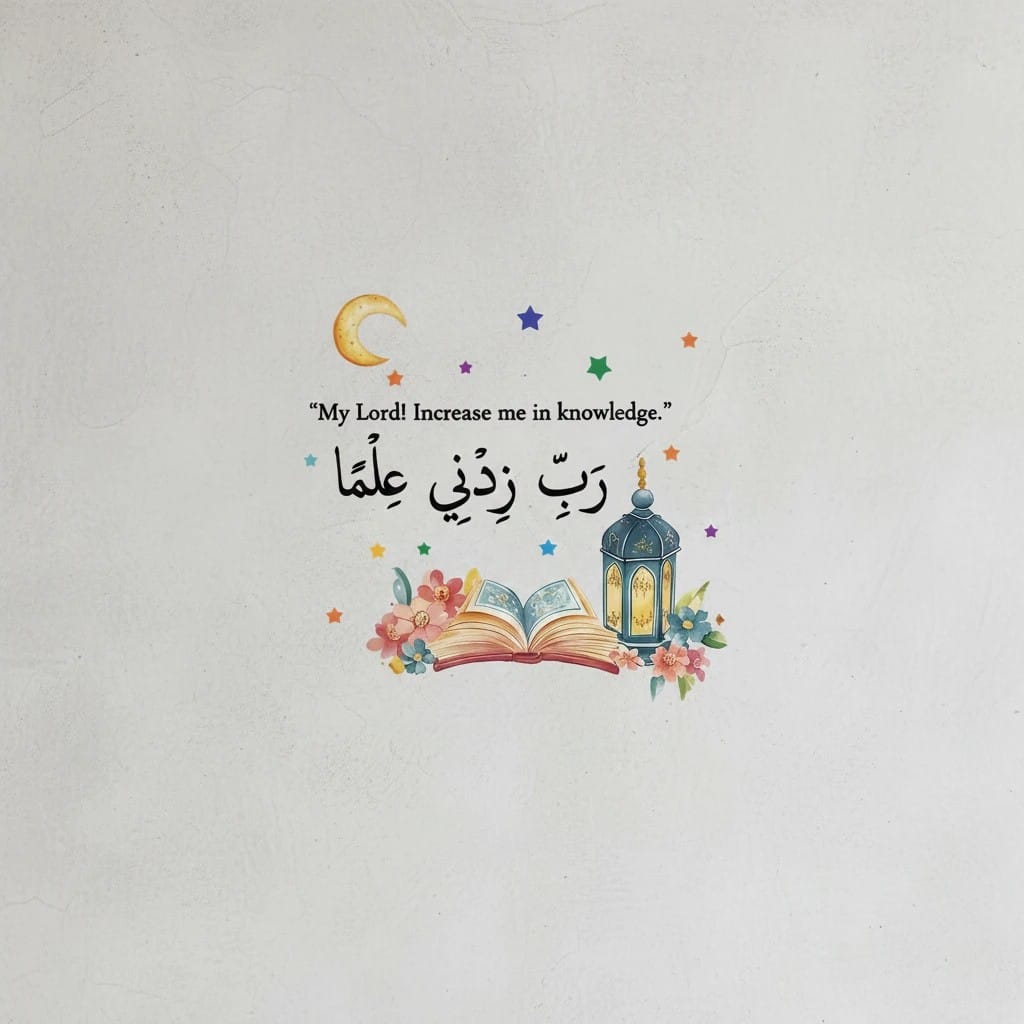 “My Lord! Increase me in knowledge.”
رَبِّ زِدْنِي عِلْمًا